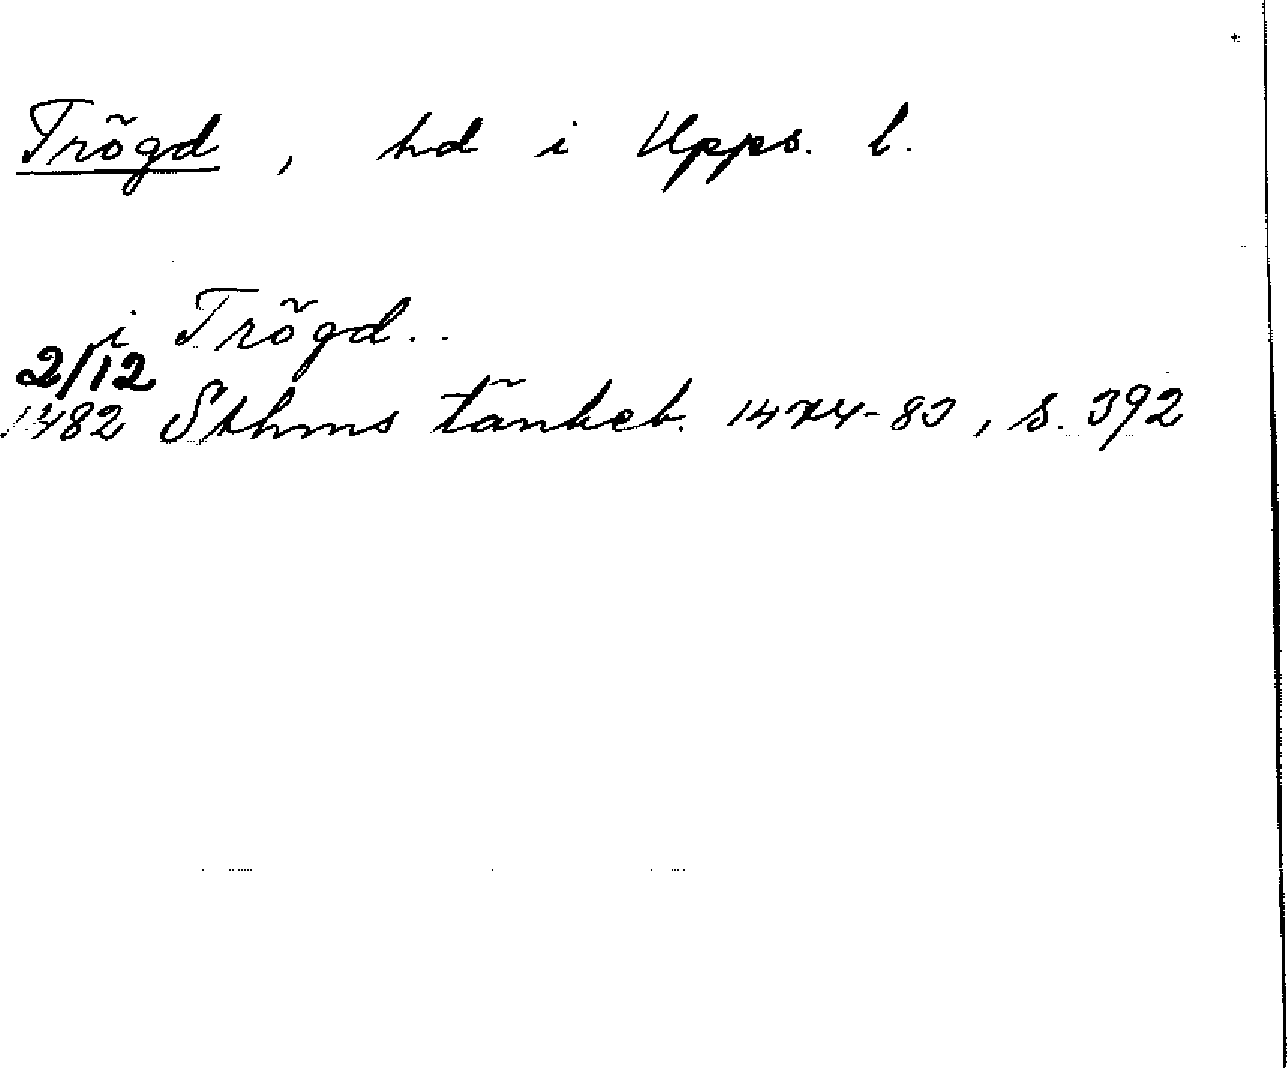 Trögd, hd i Upps. l.
i Trögd..
2/12
1482 Sthms tänkeb. 1474-83, s. 392